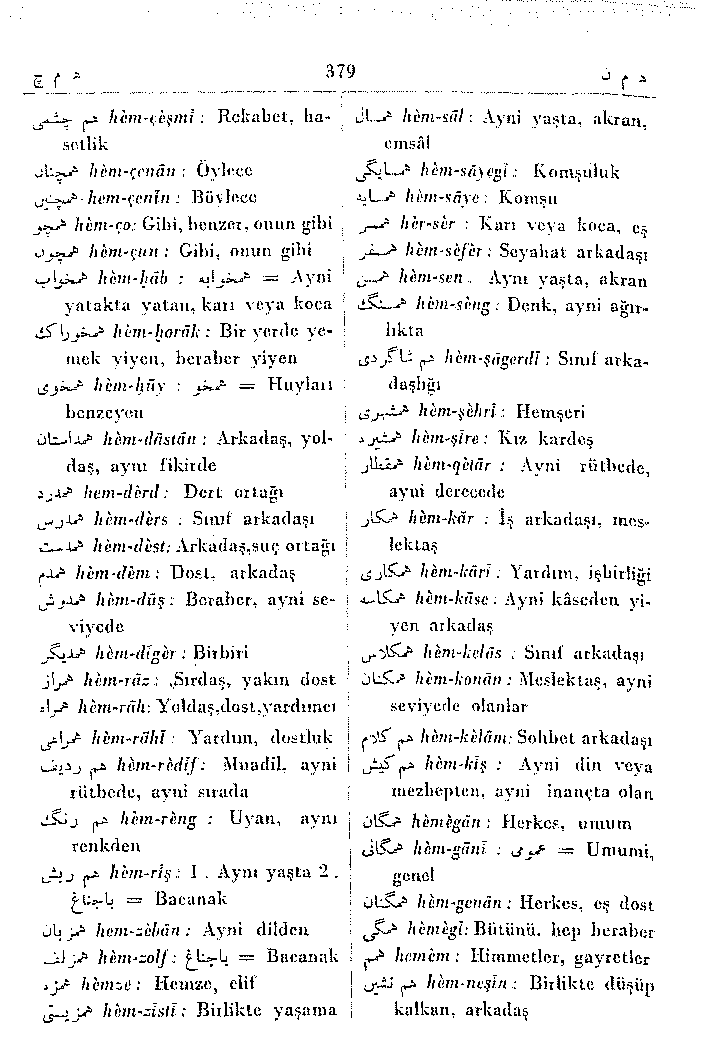 ه م چ
379
ه م ن
هم چشمی hèm-çèşmî : Rekabet, ha-
setlik
همچنان hèm-çenân : Öylece
همچنین hem-çenîn : Böylece
همچو hèm-ço: Gibi, benzer, onun gibi
همچون hèm-çun : Gibi, onun gibi
همخواب hèm-ḥâb : همخوابه = Ayni
yatakta yatan, karı veya koca
همخوراك hèm-ḥorâk : Bir yerde ye-
mek yiyen, beraber yiyen
همخوی hèm-ḥûy : همخو = Huyları
benzeyen
همداستان hèm-dâstân : Arkadaş, yol-
daş, aynı fikirde
همدرد hem-dèrd : Dert ortağı
همدرس hèm-dèrs : Sınıf arkadaşı
همدست hèm-dèst: Arkadaş,suç ortağı
همدم hèm-dèm : Dost, arkadaş
همدوش hèm-dûş : Beraber, ayni se-
viyede
همدیگر hèm-dîgèr : Birbiri
همراز hèm-râz : Sırdaş, yakın dost
همراه hèm-râh: Yoldaş,dost,yardımcı
همراهی hèm-râhî : Yardım, dostluk
هم ردیف hèm-rèdîf : Muadil, ayni
rütbede, ayni sırada
هم رنگ hèm-rèng : Uyan, aynı
renkden
هم ریش hèm-rîş : 1 . Aynı yaşta 2 .
باجناغ = Bacanak
همزبان hem-zèbân : Ayni dilden
همزلف hèm-zolf : باجناغ = Bacanak
همزه hèmze : Hemze, elif
همزیستی hèm-zîstî : Birlikte yaşama
همسال hèm-sâl : Ayni yaşta, akran,
emsâl
همسایگی hèm-sâyegî : Komşuluk
همسایه hèm-sâye : Komşu
همسر hèr-sèr : Karı veya koca, eş
همسفر hèm-sèfèr : Seyahat arkadaşı
همسن hèm-sen . Aynı yaşta, akran
همسنگ hèm-sèng : Denk, ayni ağır-
lıkta
هم شاگردی hèm-şâgerdî : Sınıf arka-
daşlığı
همشهری hèm-şèhrî : Hemşeri
همشیره hèm-şîre : Kız kardeş
همقطار hèm-qètâr : Ayni rütbede,
ayni derecede
همكار hèm-kâr : İş arkadaşı, mes-
lektaş
همكاری hèm-kârî : Yardım, işbirliği
همكاسه hèm-kâse : Ayni kâseden yi-
yen arkadaş
همكلاس hèm-kelâs : Sınıf arkadaşı
همكنان hèm-konân : Meslektaş, ayni
seviyede olanlar
هم كلام hèm-kèlâm: Sohbet arkadaşı
هم كیش hèm-kîş : Ayni din veya
mezhepten, ayni inançta olan
همگان hèmègân : Herkes, umum
همگانی hèm-gânî : عمومی = Umumi,
genel
همگنان hèm-genân : Herkes, eş dost
همگی hèmègî: Bütünü, hep beraber
همم hemèm : Himmetler, gayretler
هم نشین hèm-neşîn : Birlikte düşüp
kalkan, arkadaş